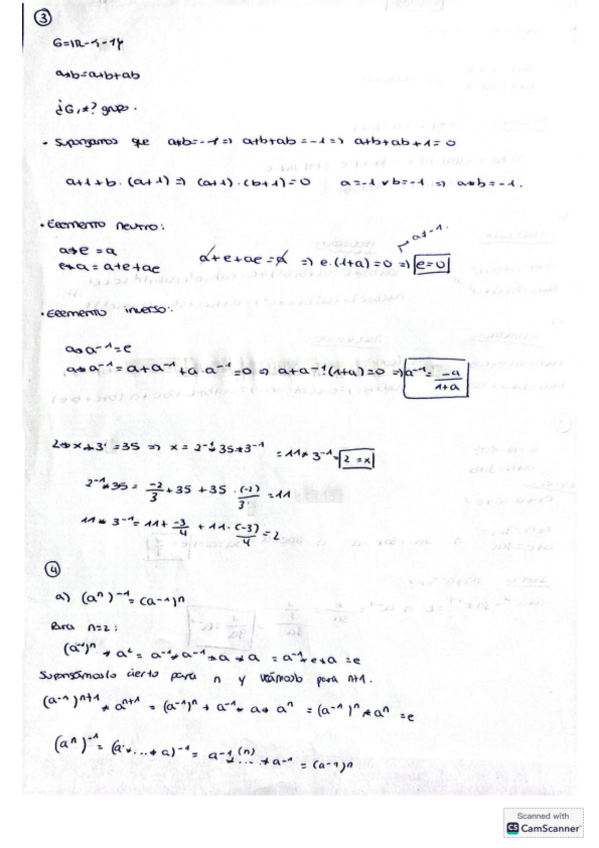 ③
G=ℝ-{-1}
a*b=a+b+ab
¿G,*? grupo.
• Supongamos que a*b=-1 ⇒ a+b+ab=-1 ⇒ a+b+ab+1=0
a+1+b·(a+1) ⇒ (a+1)·(b+1)=0 a=-1 ∨ b=-1 ⇒ a*b=-1.
• Elemento neutro: a≠-1.
a*e=a a+e+ae=a ⇒ e·(1+a)=0 ⇒ e=0
e*a=a+e+ae
• Elemento inverso:
a*a⁻¹=e
a*a⁻¹=a+a⁻¹+a·a⁻¹=0 ⇒ a+a⁻¹(1+a)=0 ⇒ a⁻¹=-a/(1+a)
2*x*3=35 ⇒ x=2⁻¹*35*3⁻¹=11*3⁻¹= 2=x
2⁻¹*35=-2/3+35+35·(-2)/3=11
11*3⁻¹=11+-3/4+11·(-3)/4=2
④
a) (aⁿ)⁻¹=(a⁻¹)ⁿ
Para n=2:
(a⁻¹)ⁿ*a²=a⁻¹*a⁻¹*a*a=a⁻¹*e*a=e
Supongámoslo cierto para n y veámoslo para n+1.
(a⁻¹)ⁿ⁺¹*aⁿ⁺¹=(a⁻¹)ⁿ*a⁻¹*a*aⁿ=(a⁻¹)ⁿ*aⁿ=e
(aⁿ)⁻¹=(a*...*a)⁻¹=a⁻¹*...(n)*a⁻¹=(a⁻¹)ⁿ
Scanned with
CS CamScanner